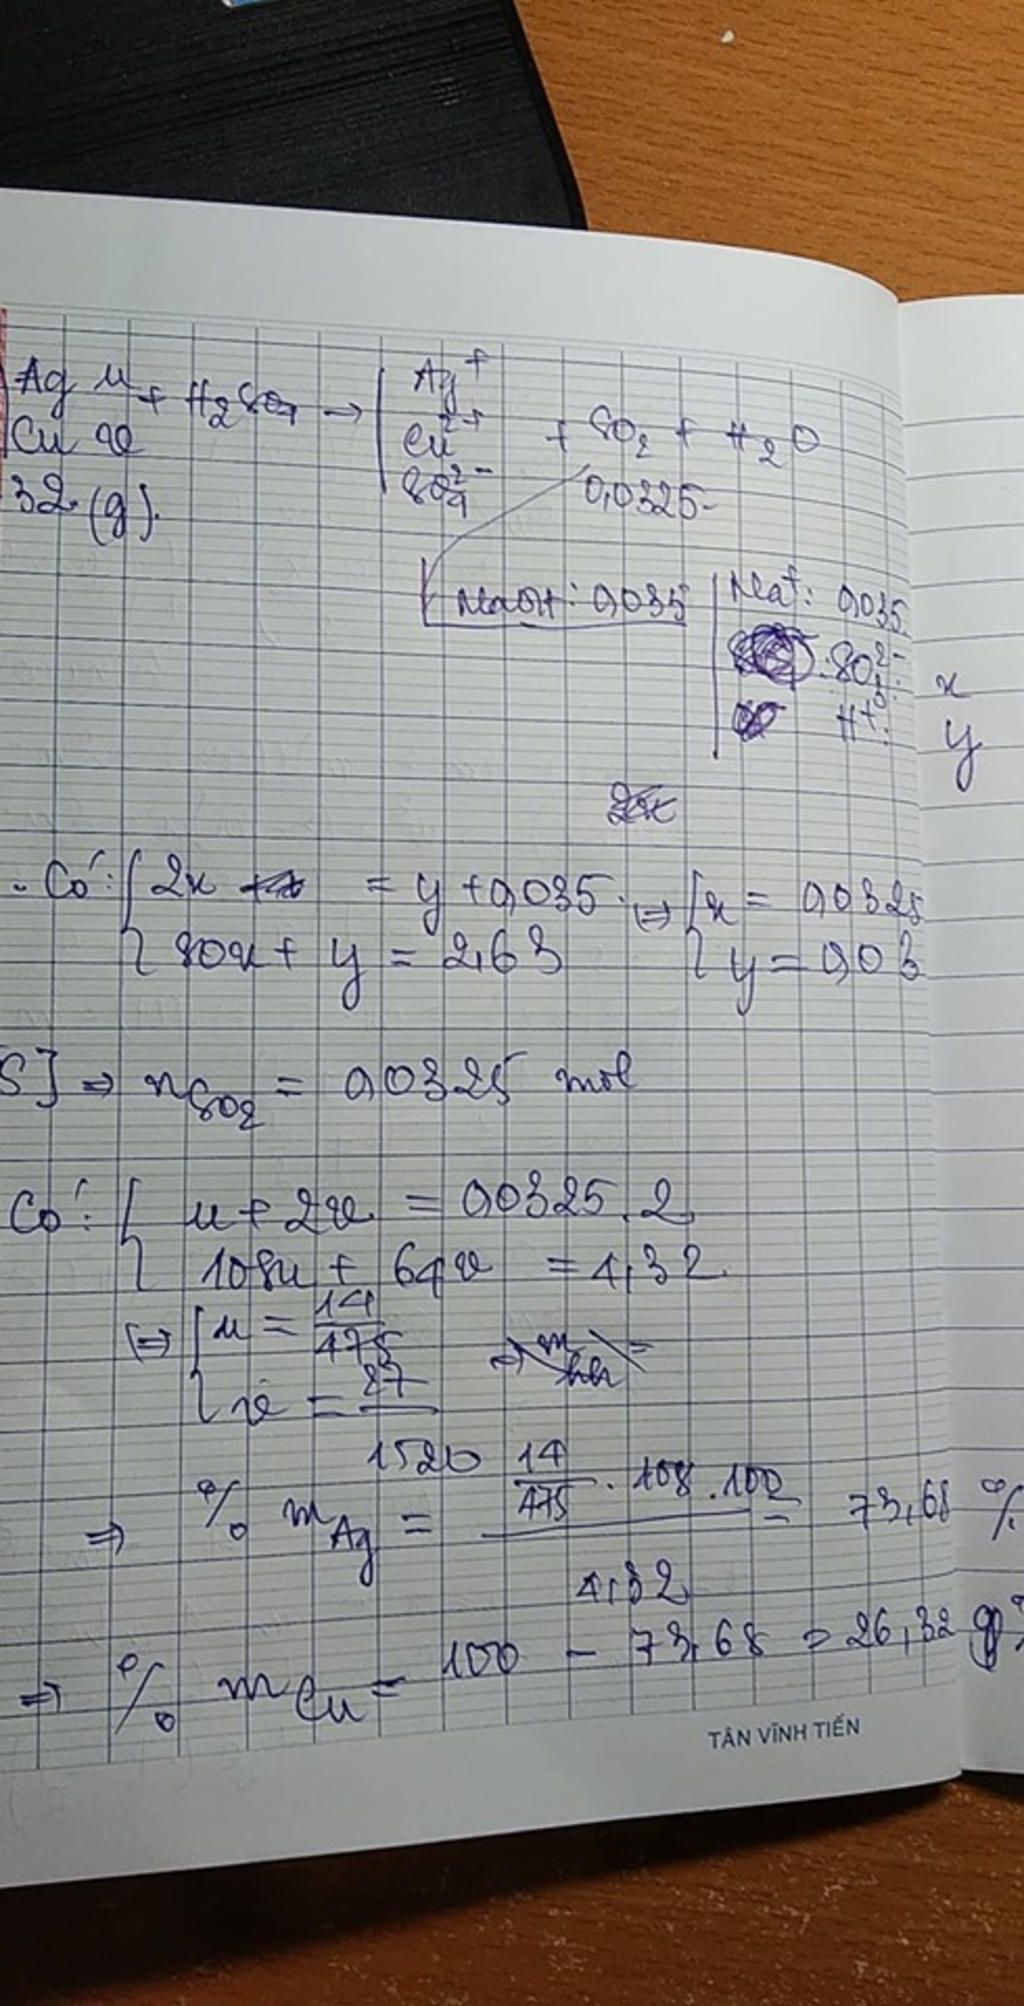 Ag u + H₂SO₄ → Ag⁺
Cu v Cu²⁺ + SO₂ + H₂O
32 (g). SO₄²⁻ 0,0325
NaOH: 0,035 Na⁺: 0,035
SO₃²⁻: x
H⁺: y
- Có: { 2x = y + 0,035 ⇔ { x = 0,0325
80x + y = 2,63 y = 0,03
S] ⇒ nSO₂ = 0,0325 mol
Có: { u + 2v = 0,0325.2
108u + 64v = 4,32
⇔ { u = 14/475
v = 27/1520
⇒ % mAg = 14/475 . 108 . 100 / 4,32 = 73,68 %
⇒ % mCu = 100 - 73,68 = 26,32 %
TÂN VĨNH TIẾN